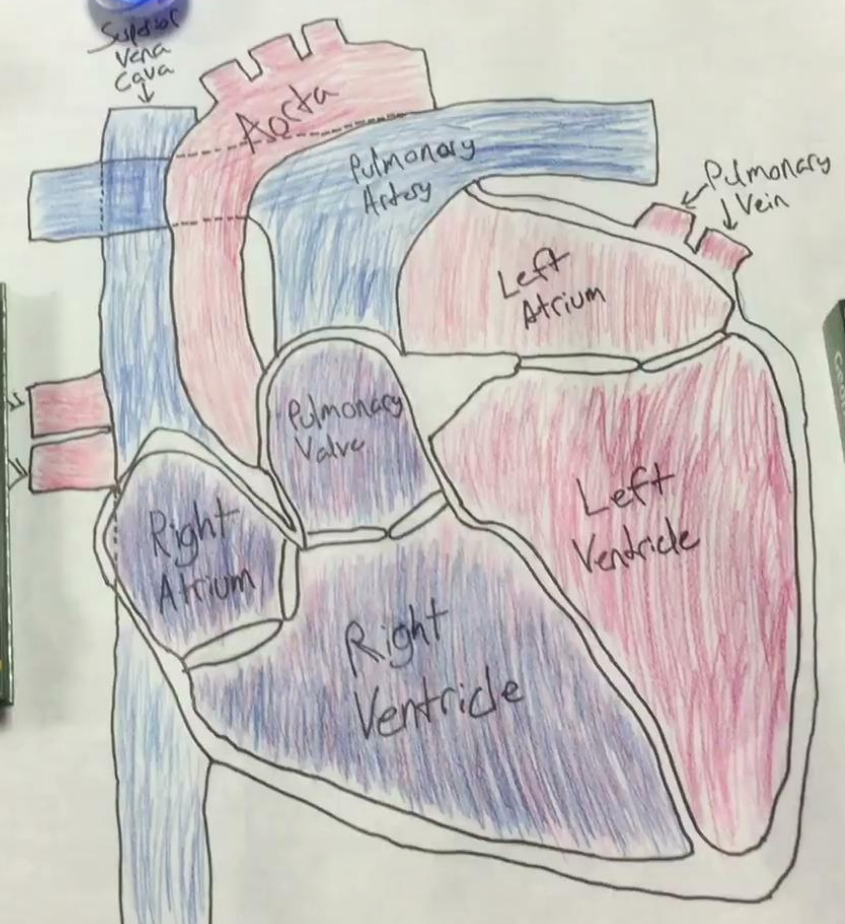 Superior
Vena
Cava
Aorta
Pulmonary
Artery
Pulmonary
Vein
Left
Atrium
Pulmonary
Valve
Left
Ventricle
Right
Atrium
Right
Ventricle